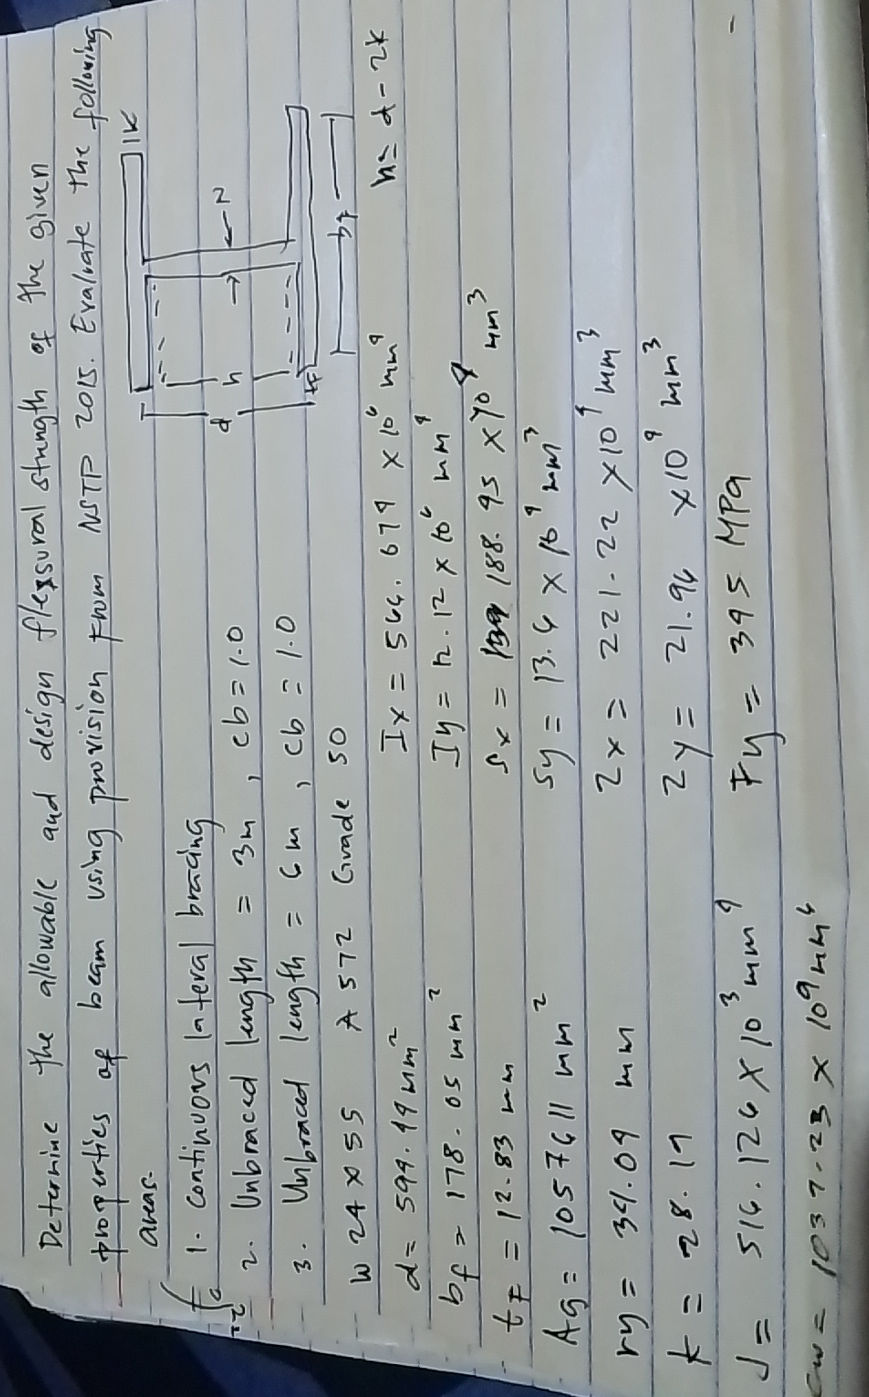 Determine the allowable and design flexsural strength of the given
properties of beam using provision from NSTP 2015. Evaluate the following
areas.
1. Continuous lateral bracing
2. Unbraced length = 3m, cb = 1.0
3. Unbraced length = 6m, cb = 1.0
W 24 x 55 A 572 Grade 50
1K
d
h
tf
bf
h = d - 2k
d = 599.44 mm²
bf = 178.05 mm²
tf = 12.83 mm
Ag = 10576.11 mm²
ry = 34.04 mm
k = 28.19
J = 516.126 x 10³ mm⁴
Cw = 1037.23 x 10⁹ mm⁶
Ix = 566.679 x 10⁶ mm⁴
Iy = 12.12 x 10⁶ mm⁴
Sx = 188.95 x 10⁴ mm³
Sy = 13.6 x 10⁴ mm³
Zx = 221.22 x 10⁴ mm³
Zy = 21.96 x 10⁴ mm³
Fy = 345 MPa